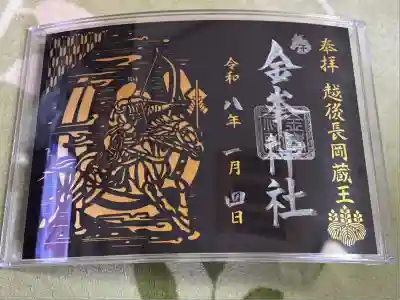 奉拝 越後長岡蔵王
金峯神社
令和八年 一月四日